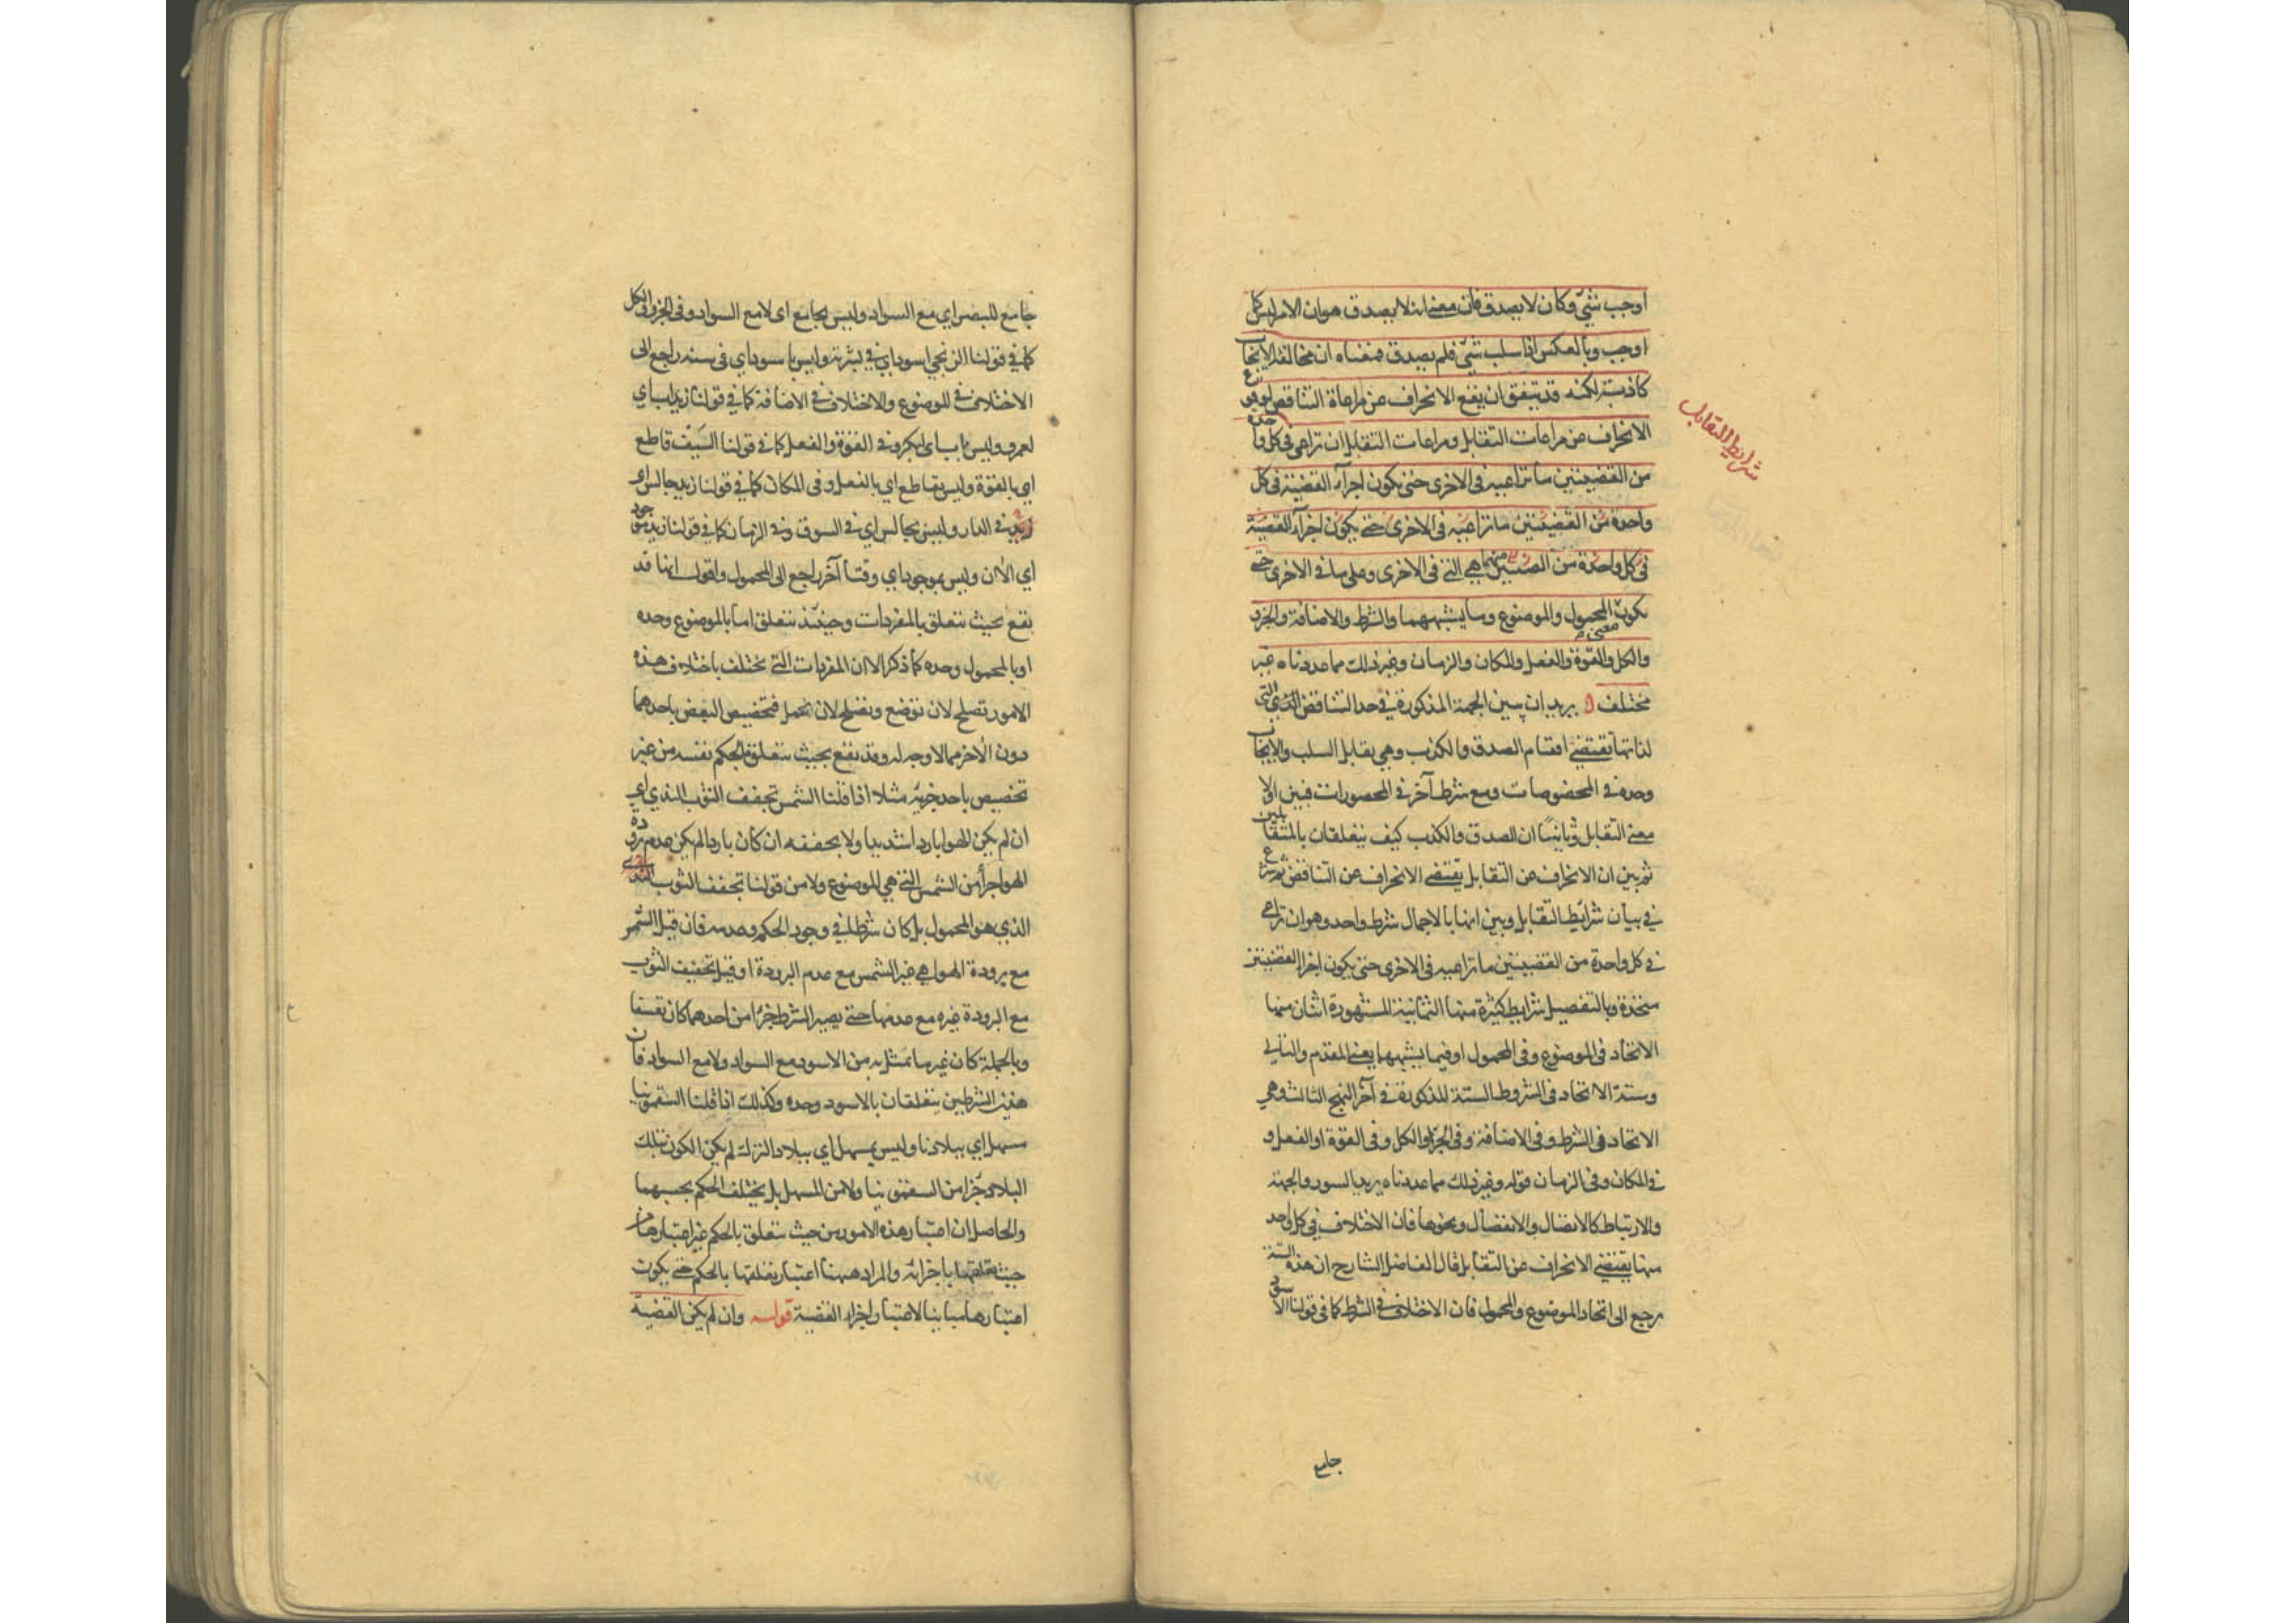 اوجب شيء وكان لا يصدق فان معنى انه لا يصدق هو ان الامر ليس كل
اوجب وبالعكس اذا سلب شيء فلم يصدق فمعناه ان مخالفه الايجاب
كاذبة لكنه قد يتفق ان يقع الانحراف عن مراعاة التناقض لوقوع
الانحراف عن مراعات التقابل ومراعات التقابل ان تراعى في كل واحدة
من القضيتين ما تراعيه في الاخرى حتى تكون اجزآء القضية في كل
واحدة من القضيتين ما تراعيه في الاخرى حتى يكون اجزآء القضية
في كل واحدة منهما هي التي في الاخرى وعلى ما في الاخرى حتى
يكون معنى المحمول والموضوع وما يشبههما والشرط والاضافة والجزء
والكل والقوة والفعل والمكان والزمان وغير ذلك مما عددناه غير
مختلف يريد ان يبين الجهة المذكورة في حد التناقض التي
لذاتها تقتضي اقتسام الصدق والكذب وهي تقابل السلب والايجاب
وحده في المخصوصات ومع شرط آخر في المحصورات فبين اولا
معنى التقابل وثانيًا ان الصدق والكذب كيف يتعلقان بالمتقابلين
ثم بين ان الانحراف عن التقابل يقتضي الانحراف عن التناقض ثم شرع
في بيان شرائط التقابل وبين انها بالاجمال شرط واحد وهو ان تراعي
في كل واحدة من القضيتين ما تراعيه في الاخرى حتى يكون اجزا القضيتين
متحدة وبالتفصيل شرايط كثيرة منها الثمانية المشهورة اثنان منها
الاتحاد في الموضوع وفي المحمول او فيما يشبهها يعني المقدم والتالي
وستة الاتحاد في الشروط الستة المذكورة في آخر النهج الثالث وهي
الاتحاد في الشرط وفي الاضافة وفي الجزء والكل وفي القوة او الفعل و
في المكان وفي الزمان قوله وغير ذلك مما عددناه يريد السور والجهة
والارتباط كالاتصال والانفصال ونحوها فان الاختلاف في كل واحد
منها يقتضي الانحراف عن التقابل قال الفاضل الشارح ان هذه الستة
يرجع الى اتحاد الموضوع والمحمول فان الاختلاف في الشرط كما في قولنا الاسود
شرايط التقابل
جامع
جامع للبصر اي مع السواد وليس بجامع اى لا مع السواد وفي الجزء والكل
كما في قولنا الزنجي اسود اي في بشرته وليس باسود اي في سنه راجع الى
الاختلاف في الموضوع والاختلاف في الاضافة كما في قولنا زيد اب اي
لعمرو وليس باب اى لبكر وفي القوة والفعل كما في قولنا السيف قاطع
اي بالقوة وليس بقاطع اي بالفعل وفي المكان كما في قولنا زيد جالس اى
في الدار وليس بجالس اي في السوق وفي الزمان كما في قولنا زيد موجود
اي الآن وليس بموجود اي وقتا آخر راجع الى المحمول واقول انها قد
يقع بحيث تتعلق بالمفردات وحينئذ تتعلق اما بالموضوع وحده
او بالمحمول وحده كما ذكر الا ان المفردات التي تختلف باختلاف هذه
الامور تصلح لان توضع وتصلح لان تحمل فتخصيص البعض باحدهما
دون الآخر مما لا وجه له وقد يقع بحيث تتعلق بالحكم نفسه من غير
تخصيص باحد جزئيه مثلا اذا قلنا الشمس تجفف الثوب الندي اي
ان لم يكن الهوا باردا شديدا ولا يجففه ان كان باردا لم يكن عدم برودة
الهوا جزأ من الشمس التي هي الموضوع ولا من قولنا تجفف الثوب الندى
الذي هو المحمول بل كان شرطا في وجود الحكم وعدمه فان قيل الشمس
مع برودة الهوا هي غير الشمس مع عدم البرودة او قيل تجفيف الثوب
مع البرودة غيره مع عدمها حتى يصير الشرط جزءا من احدهما كان تعسفا
وبالجملة كان غير ما تمثل به من الاسود مع السواد ولا مع السواد فان
هذين الشرطين يتعلقان بالاسود وحده وكذلك اذا قلنا السقمونيا
مسهل اي ببلادنا وليس بمسهل اي ببلاد الترك لم يكن الكون بتلك
البلاد جزءا من السقمونيا ولا من المسهل بل يختلف الحكم بحسبهما
والحاصل ان اعتبار هذه الامور من حيث تتعلق بالحكم غير اعتبارها من
حيث تعلقها باجزائه والمراد ههنا اعتبار تعلقها بالحكم حتى يكون
اعتبارها مباينا لاعتبار اجزاء القضية قوله وان لم يكن القضية